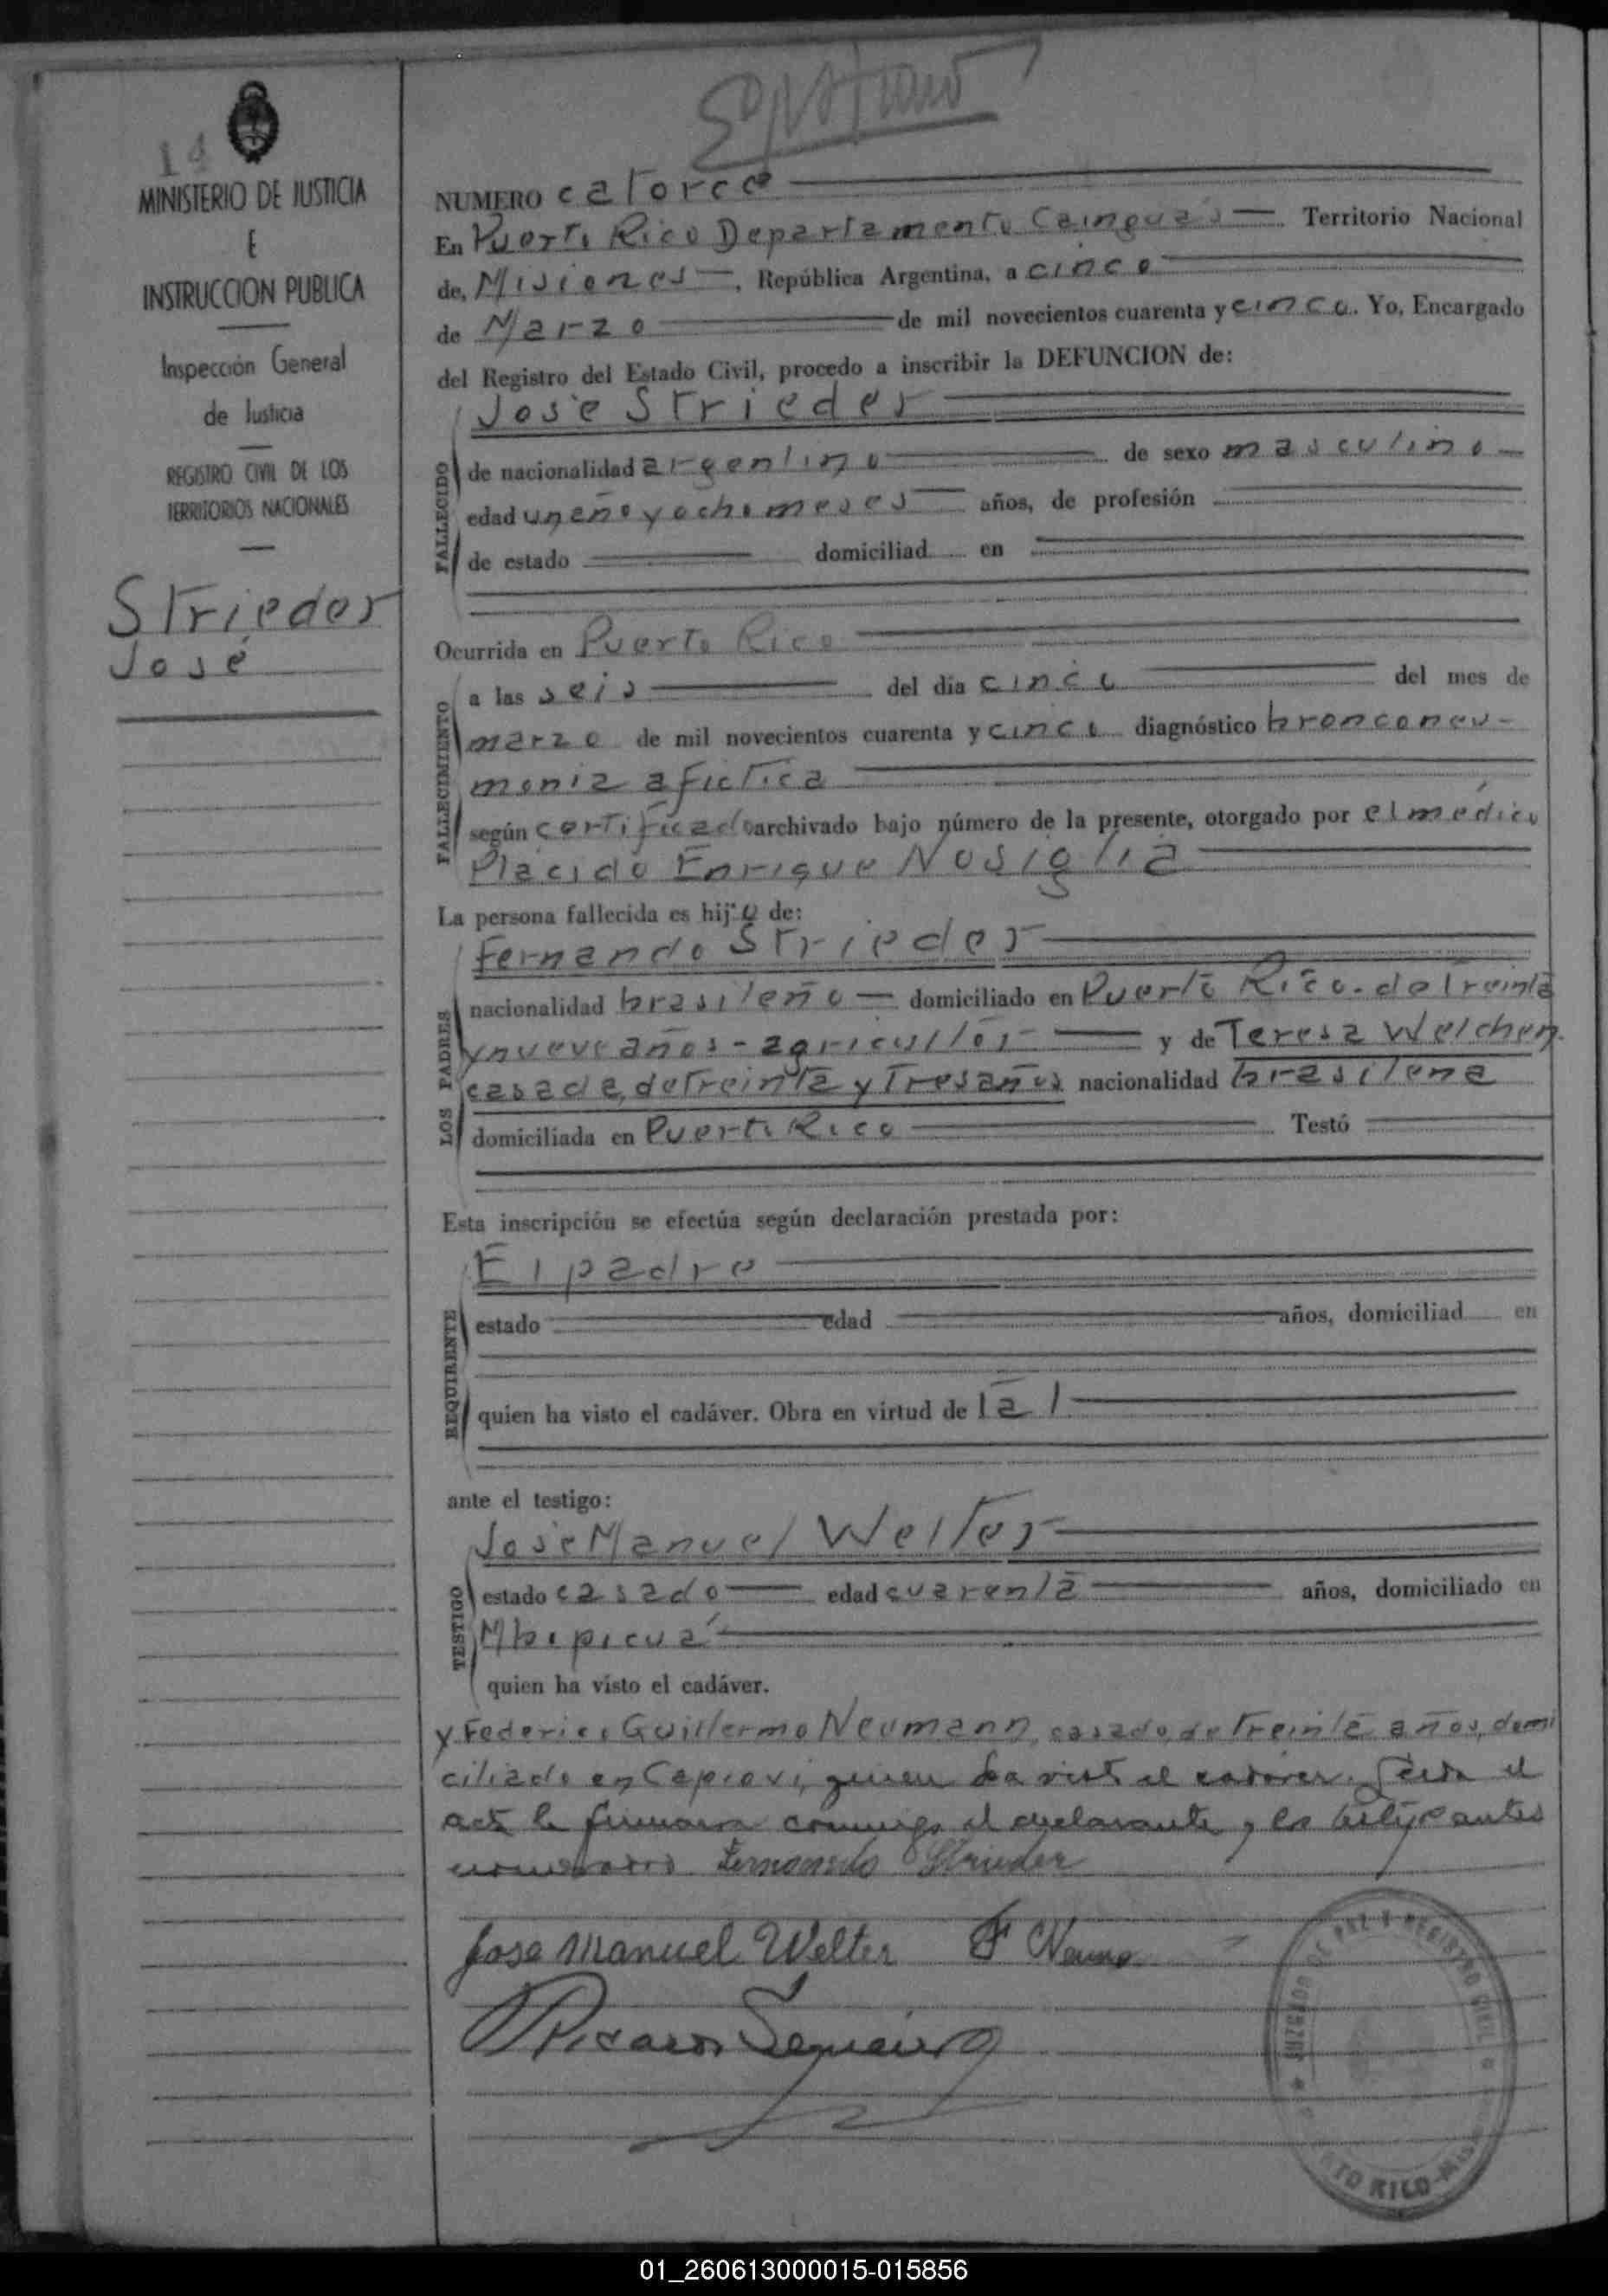 14
MINISTERIO DE JUSTICIA
E
INSTRUCCION PUBLICA
Inspección General
de Justicia
REGISTRO CIVIL DE LOS
TERRITORIOS NACIONALES
Strieder
José
NUMERO catorce
En Puerto Rico Departamento Cainguás Territorio Nacional
de, Misiones, República Argentina, a cinco
de Marzo de mil novecientos cuarenta y cinco. Yo, Encargado
del Registro del Estado Civil, procedo a inscribir la DEFUNCION de:
José Strieder
FALLECIDO
de nacionalidad argentino de sexo masculino
edad un año y ocho meses años, de profesión
de estado domiciliad en
Ocurrida en Puerto Rico
FALLECIMIENTO
a las seis del día cinco del mes de
marzo de mil novecientos cuarenta y cinco diagnóstico bronconeu-
monia afictica
según certificado archivado bajo número de la presente, otorgado por el médico
Placido Enrique Nosiglia
La persona fallecida es hijo de:
Fernando Strieder
LOS PADRES
nacionalidad brasileño domiciliado en Puerto Rico. de treinta
y nueve años - agricultor y de Teresa Welchen.
casada, de treinta y tres años nacionalidad brasilena
domiciliada en Puerto Rico Testó
Esta inscripción se efectúa según declaración prestada por:
El padre
REQUIRENTE
estado edad años, domiciliad en
quien ha visto el cadáver. Obra en virtud de tal
ante el testigo:
José Manuel Welter
TESTIGO
estado casado edad cuarenta años, domiciliado en
Mbopicuá
quien ha visto el cadáver.
y Federico Guillermo Neumann, casado, de treinta años, domi
ciliado en Capiovi, quien ha visto el cadáver. Leida el
acta la firmaron conmigo el declarante y los testigos antes
Fernando Strieder
Jose Manuel Welter F Neuma
JUZGADO DE PAZ Y REGISTRO CIVIL
RTO RICO-Mis
01_260613000015-015856